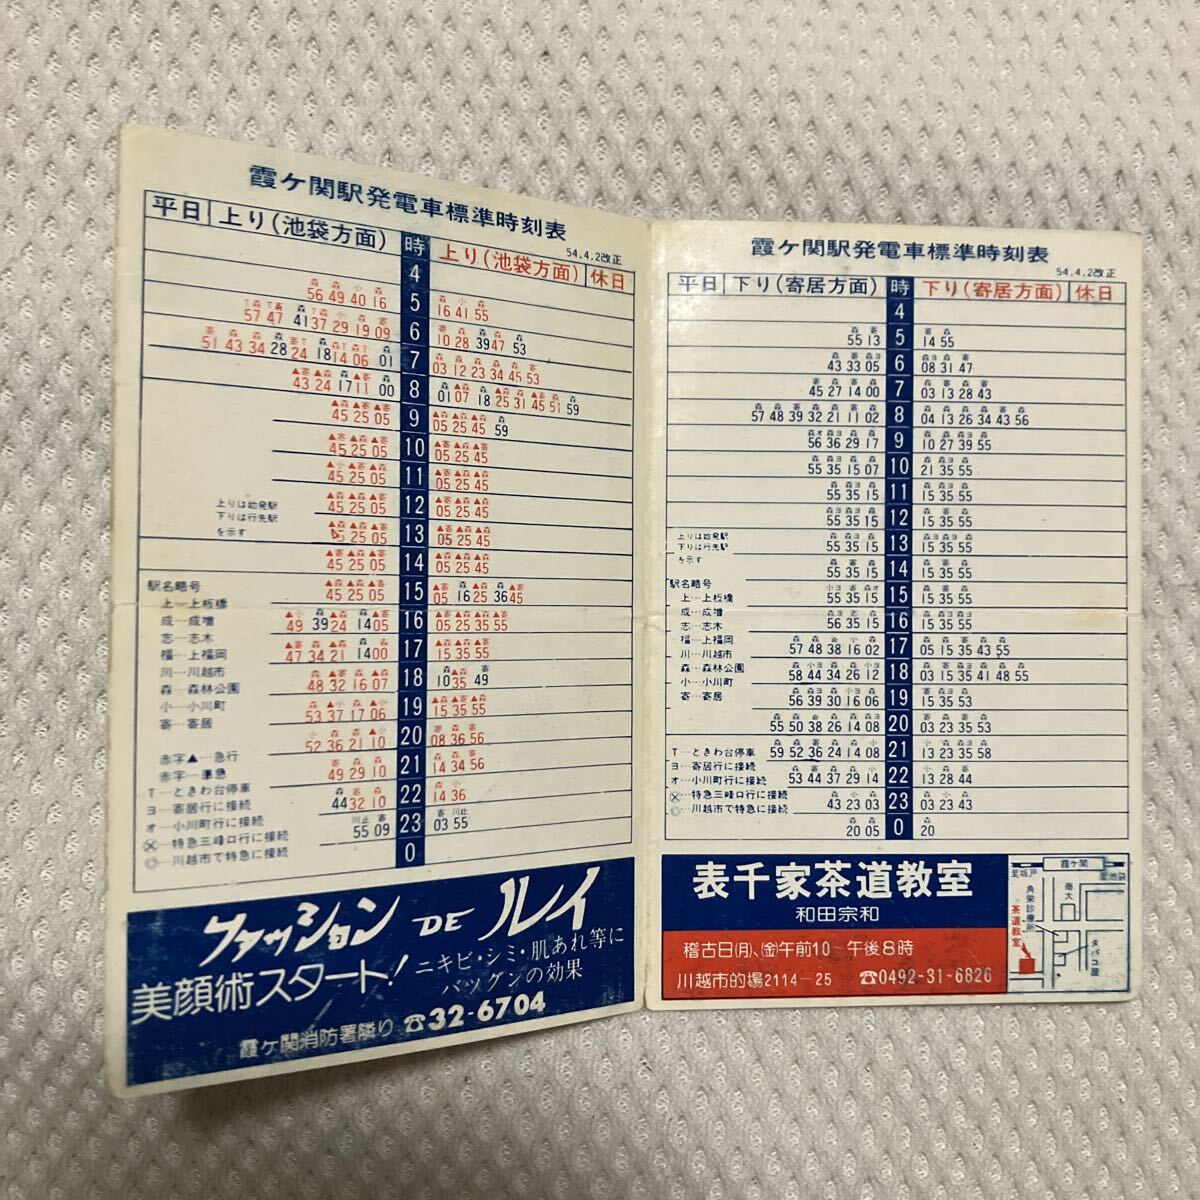 霞ケ関駅発電車標準時刻表
54.4.2改正
平日 上り(池袋方面) 時 上り(池袋方面) 休日
4
56 49 40 16 5 16 41 55
57 47 41 37 29 19 09 6 10 28 39 47 53
51 43 34 28 24 18 14 06 01 7 03 12 23 34 45 53
43 24 17 11 00 8 01 07 18 25 31 45 51 59
45 25 05 9 05 25 45 59
45 25 05 10 05 25 45
45 25 05 11 05 25 45
45 25 05 12 05 25 45
25 05 13 05 25 45
45 25 05 14 05 25 45
45 25 05 15 05 16 25 36 45
49 39 24 14 05 16 05 25 35 55
47 34 21 14 00 17 15 35 55
48 32 16 07 18 10 35 49
53 37 17 06 19 15 35 55
52 36 21 10 20 08 36 56
49 29 10 21 14 34 56
44 32 10 22 14 36
55 09 23 03 55
0
上りは始発駅
下りは行先駅
を示す
駅名略号
上…上板橋
成…成増
志…志木
福…上福岡
川…川越市
森…森林公園
小…小川町
寄…寄居
赤字▲…急行
赤字…準急
T…ときわ台停車
ヨ…寄居行に接続
オ…小川町行に接続
ⓧ…特急三峰口行に接続
◎…川越市で特急に接続
ファッション DE ルイ
美顔術スタート!
ニキビ・シミ・肌あれ等に
バツグンの効果
霞ケ関消防署隣り ☎32-6704
霞ケ関駅発電車標準時刻表
54.4.2改正
平日 下り(寄居方面) 時 下り(寄居方面) 休日
4
55 13 5 14 55
43 33 05 6 08 31 47
45 27 14 00 7 03 13 28 43
57 48 39 32 21 11 02 8 04 13 26 34 43 56
56 36 29 17 9 10 27 39 55
55 35 15 07 10 21 35 55
55 35 15 11 15 35 55
55 35 15 12 15 35 55
55 35 15 13 15 35 55
55 35 15 14 15 35 55
55 35 15 15 15 35 55
56 35 15 16 15 35 55
57 48 38 16 02 17 05 15 35 43 55
58 44 34 26 12 18 03 15 35 41 48 55
56 39 30 16 06 19 15 35 53
55 50 38 26 14 08 20 03 23 35 53
59 52 36 24 14 08 21 13 23 35 58
53 44 37 29 14 22 13 28 44
43 23 03 23 03 23 43
20 05 0 20
上りは始発駅
下りは行先駅
を示す
駅名略号
上…上板橋
成…成増
志…志木
福…上福岡
川…川越市
森…森林公園
小…小川町
寄…寄居
T…ときわ台停車
ヨ…寄居行に接続
オ…小川町行に接続
ⓧ…特急三峰口行に接続
◎…川越市で特急に接続
表千家茶道教室
和田宗和
稽古日(月)、(金)午前10~午後8時
川越市的場2114-25 ☎0492-31-6826
霞ケ関
至坂戸
至池袋
角栄診療所
商大
茶道教室
タバコ屋